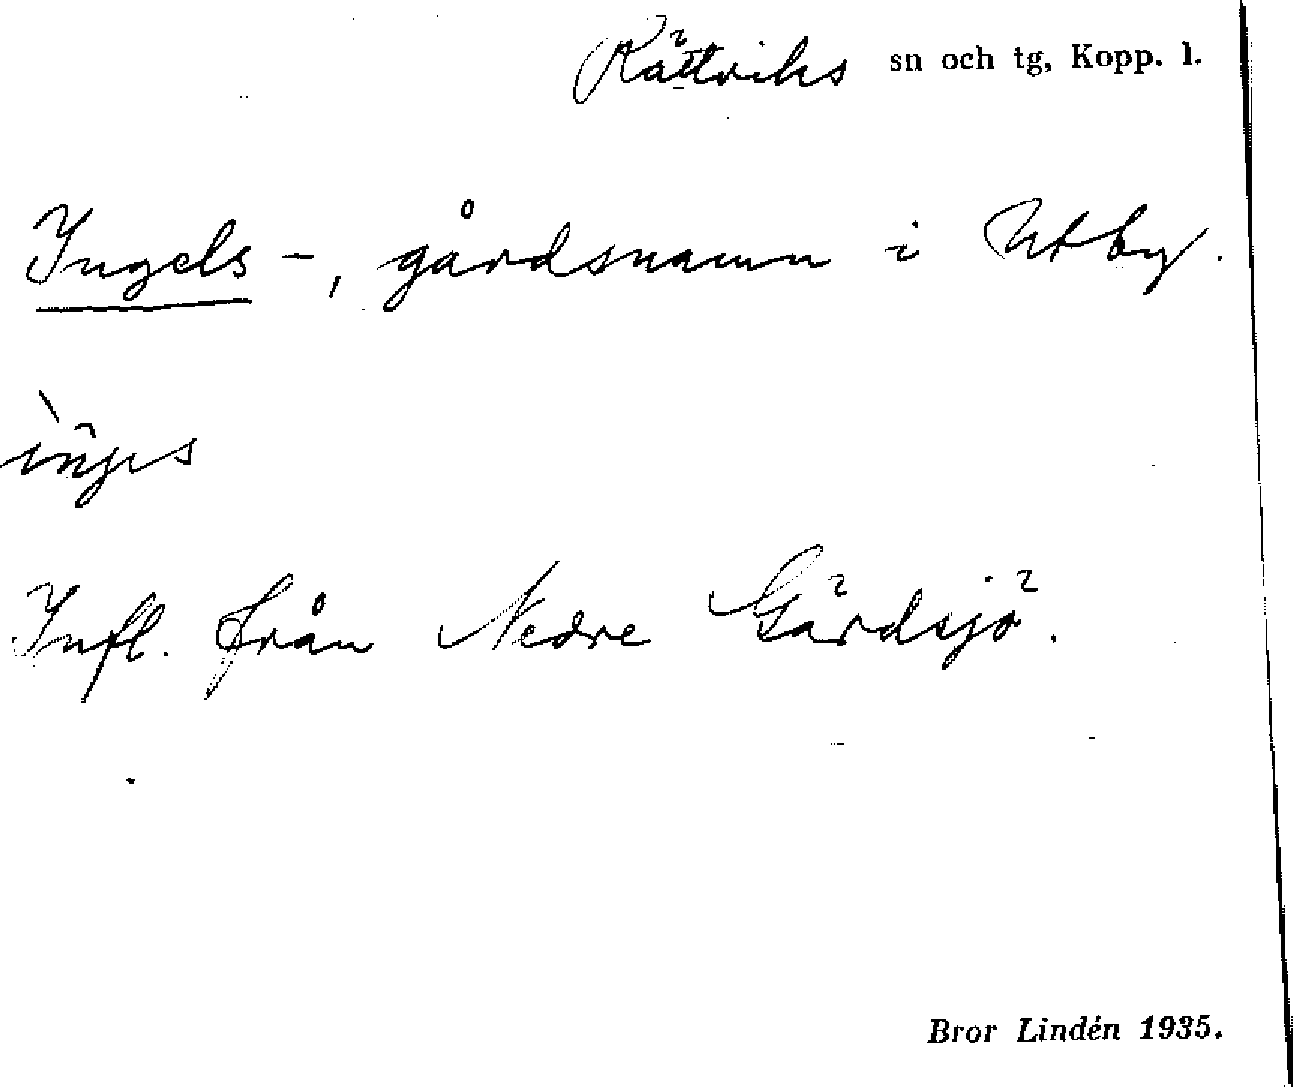 Rättviks sn och tg, Kopp. l.
Ingels -, gårdsnamn i Utby.
Infl. från Nedre Gärdsjö.
Bror Lindén 1935.